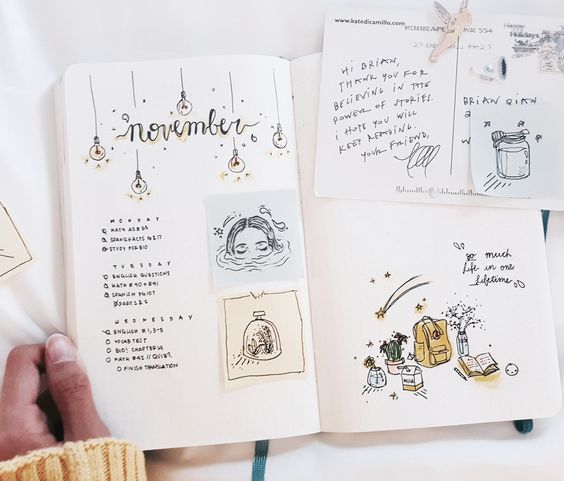 november
MONDAY
STUDY FOR BIO
TUESDAY
ENGLISH QUESTIONS
MATH #40 + #41
SPANISH PG 107
WEDNESDAY
ENGLISH #1, 3-5
VOCAB TEST
BIO! CHAPTER 14
MATH #42 // QUIZ?
FINISH TRANSLATION
www.katedicamillo.com
HI BRIAN,
THANK YOU FOR
BELIEVING IN THE
POWER OF STORIES.
I HOPE YOU WILL
KEEP READING.
YOUR FRIEND,
MN 554
Happy
Holidays
BRIAN QIAN
2
so much
life in one
lifetime
MILK